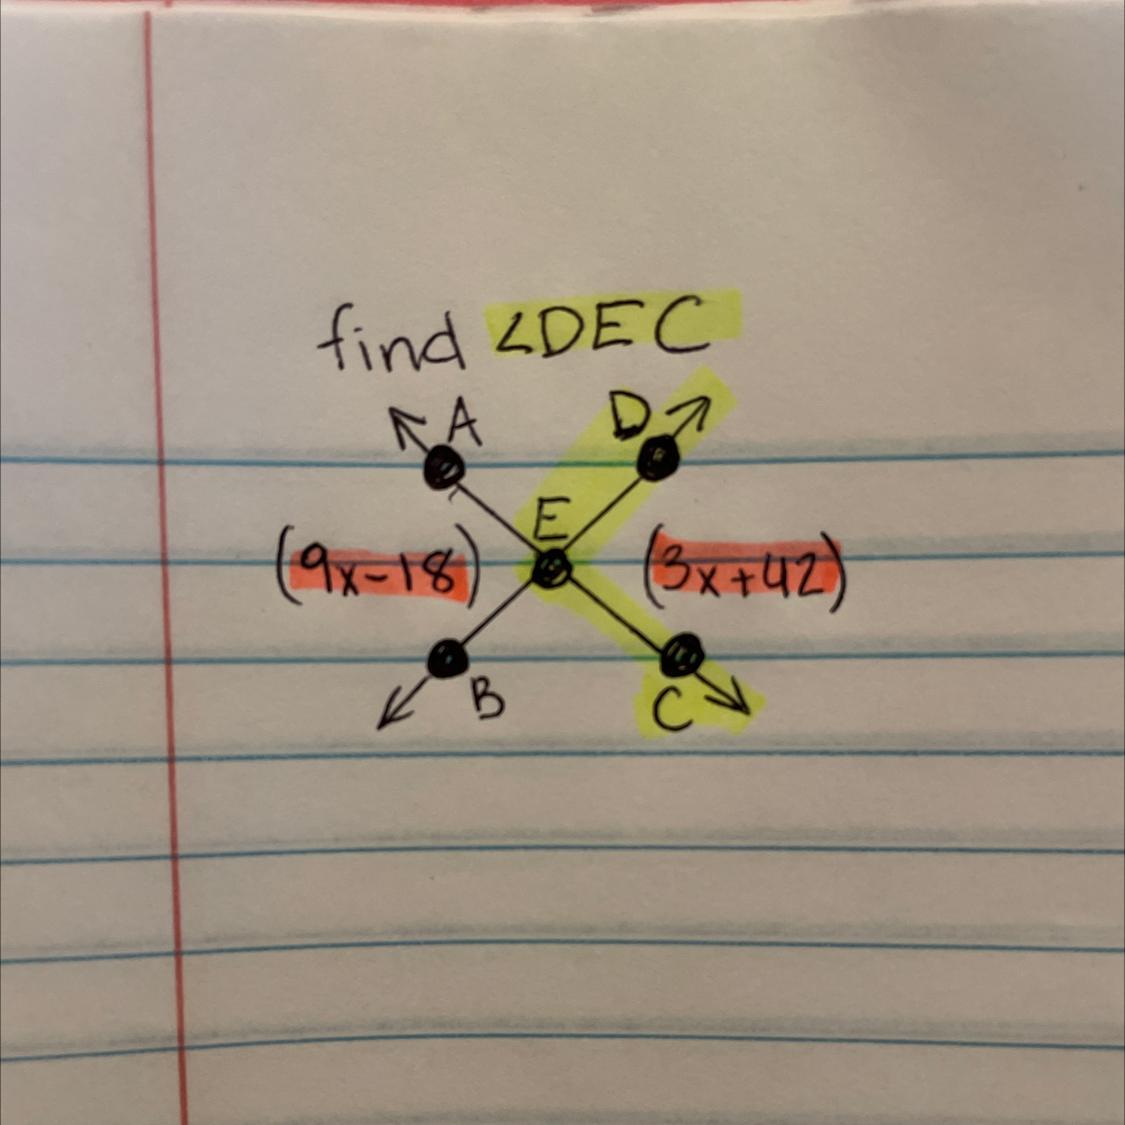 find ∠DEC
A D
E
(9x-18) (3x+42)
B C